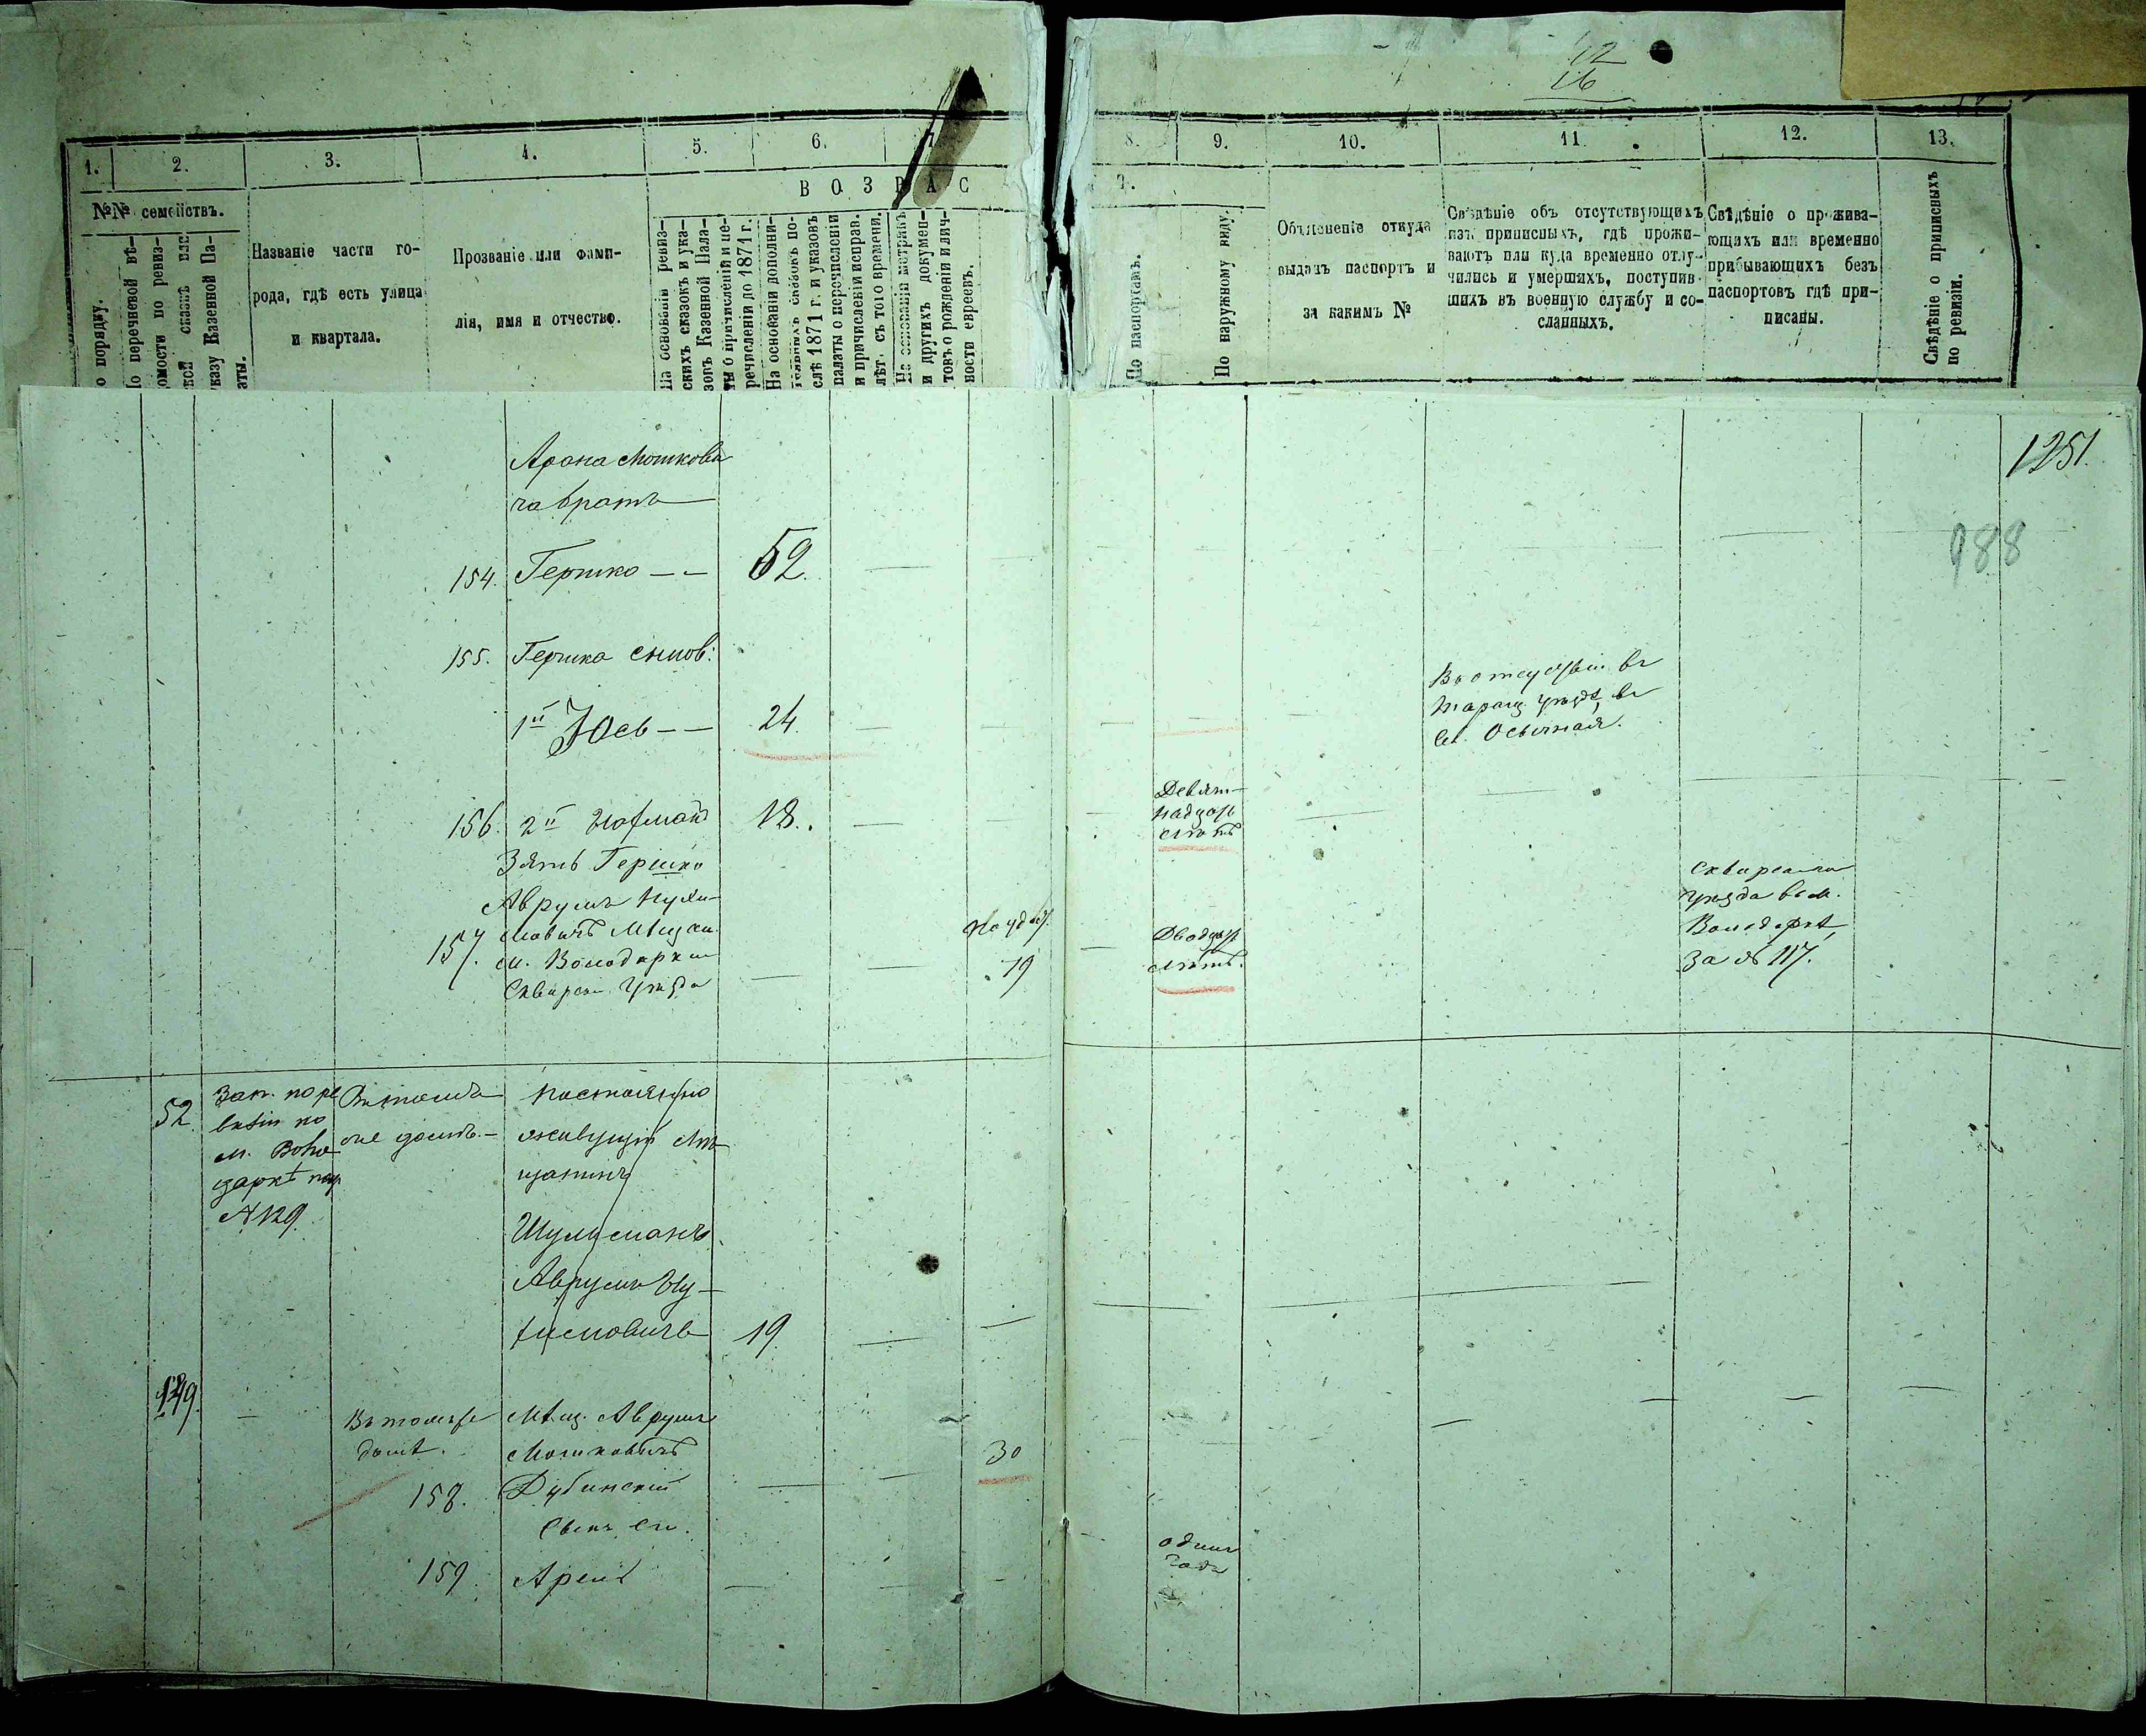 12
16
1.
2.
3.
4.
5.
6.
7.
8.
9.
10.
11.
12.
13.
ВОЗРАС
Т.
№№ семействъ.
о порядку.
Названіе части го-
рода, гдѣ есть улица
и квартала.
Прозваніе или фами-
лія, имя и отчество.
На основаніи ревиз-
скихъ сказокъ и ука-
зовъ Казенной Пала-
ты о причисленіи и пе-
речисленіи до 1871 г.
На основаніи дополни-
слѣ 1871 г. и указовъ
палаты о перечисленіи
и причисленіи исправ.
лѣт. съ того времени.
На основаніи метрикъ
и другихъ докумен-
товъ о рожденіи и лич-
ности евреевъ.
По паспортамъ.
По наружному виду.
Объясненіе откуда
выданъ паспортъ и
за какимъ №
Свѣдѣніе объ отсутствующихъ
изъ приписныхъ, гдѣ прожи-
ваютъ или куда временно отлу-
чились и умершихъ, поступив-
шихъ въ военную службу и со-
сланныхъ.
Свѣдѣніе о прожива-
ющихъ или временно
прибывающихъ безъ
паспортовъ гдѣ при-
писаны.
Свѣдѣніе о приписныхъ
по ревизіи.
1251.
988
Арона Мошкови
ча братъ
154. Гершко — — 52.
155. Гершка сынов:
1й Юсь — — 24.
Въ отсутствіи въ
Таращ. уѣздѣ, въ
156. 2й Нафманъ 18.
Девят-
надцать
лѣтъ
Зять Гершка
Аврумъ Нухи-
157. мовичъ Мѣщан.
м. Володарки
Сквирск. Уѣзда
19
Двадцать
лѣтъ.
Сквирскаго
уѣзда в м.
Володаркѣ,
за № 117.
52.
Зап. по ре
визіи по
м. Воло
даркѣ под
№ 129.
Въ томъ
же домѣ. —
постоянно
живущій мѣ
щанинъ
Шулиманъ
Аврумъ Ну-
химовичъ 19.
149.
Въ томъ же
домѣ.
Мѣщ. Аврумъ
Мошковичъ
30
158. Дубинскій
Сынъ его.
159. Аронъ
одинъ
годъ